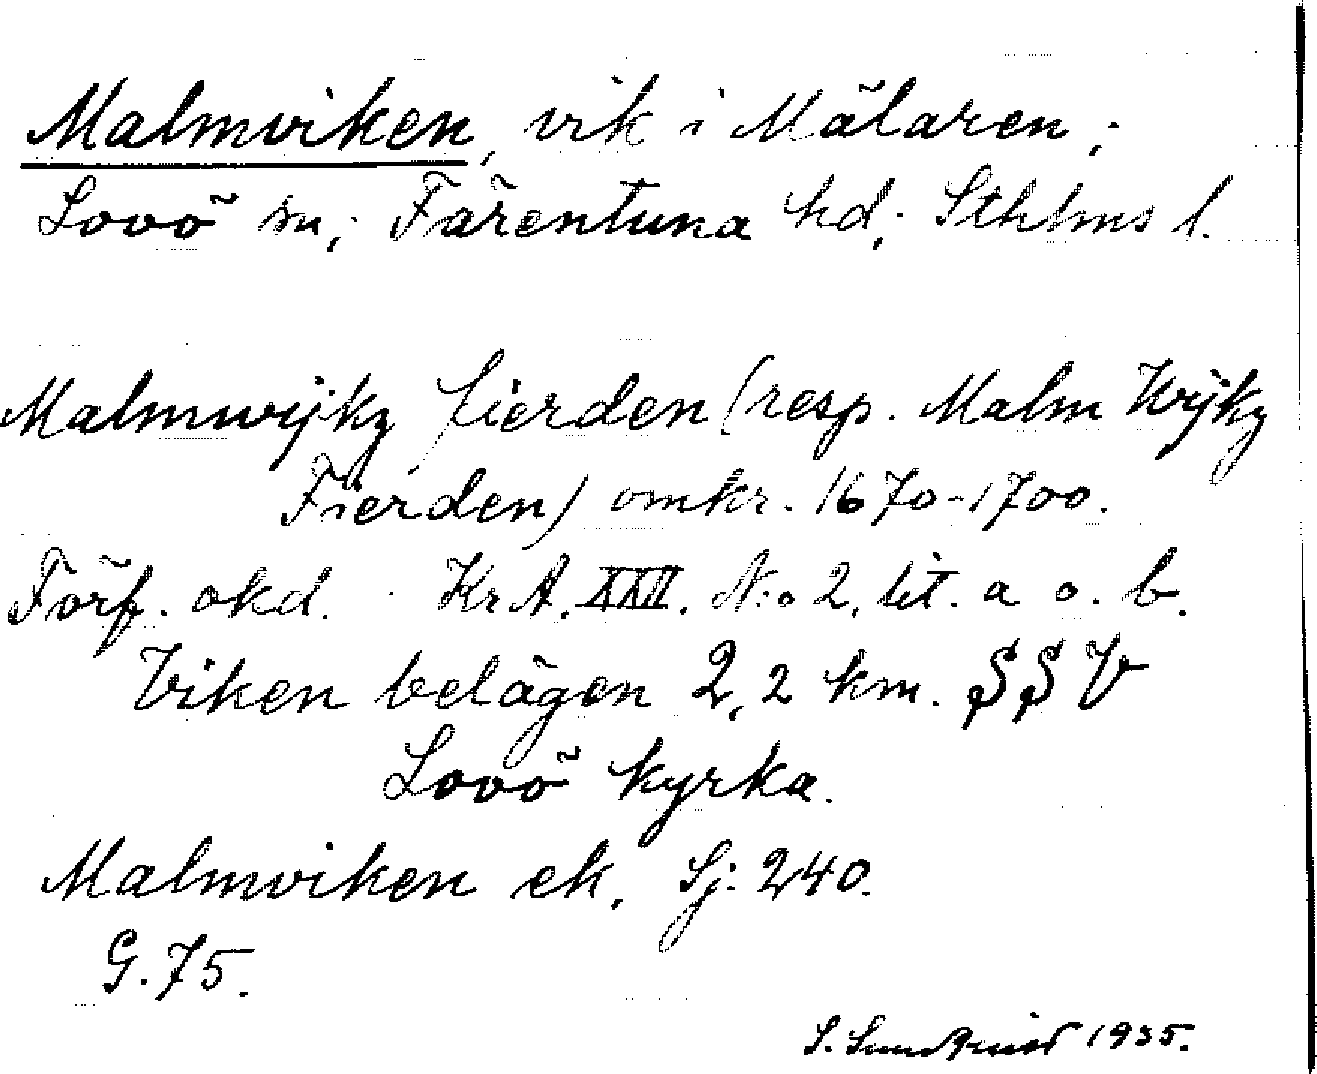 Malmviken, vik i Mälaren;
Lovö sn; Färentuna hd; Sthlms l.
Malmwijkz fierden (resp. Malm Wijkz
Fierden) omkr. 1670-1700.
Förf. okd. Kr A. XXV. N:o 2, lit. a o. b.
Viken belägen 2,2 km. SSV
Lovö kyrka.
Malmviken ek. Sj. 240.
G. 75.
S. Sundqvist 1935.